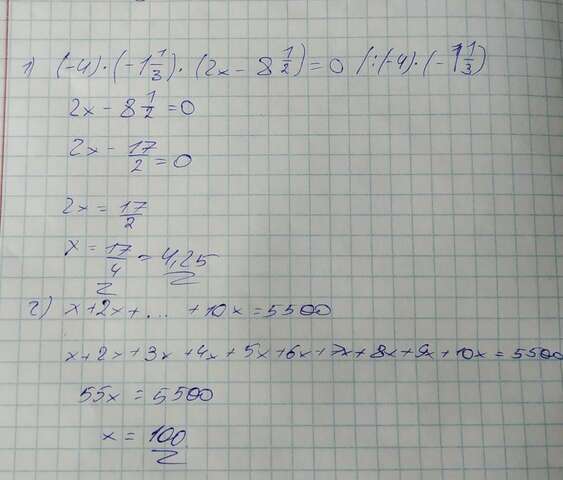 1) (-4)·(-1 1/3)·(2x - 8 1/2) = 0 /:(-4)·(-1 1/3)
2x - 8 1/2 = 0
2x - 17/2 = 0
2x = 17/2
x = 17/4 = 4,25
2) x+2x+... +10x=5500
x+2x+3x+4x+5x+6x+7x+8x+9x+10x=5500
55x = 5500
x = 100